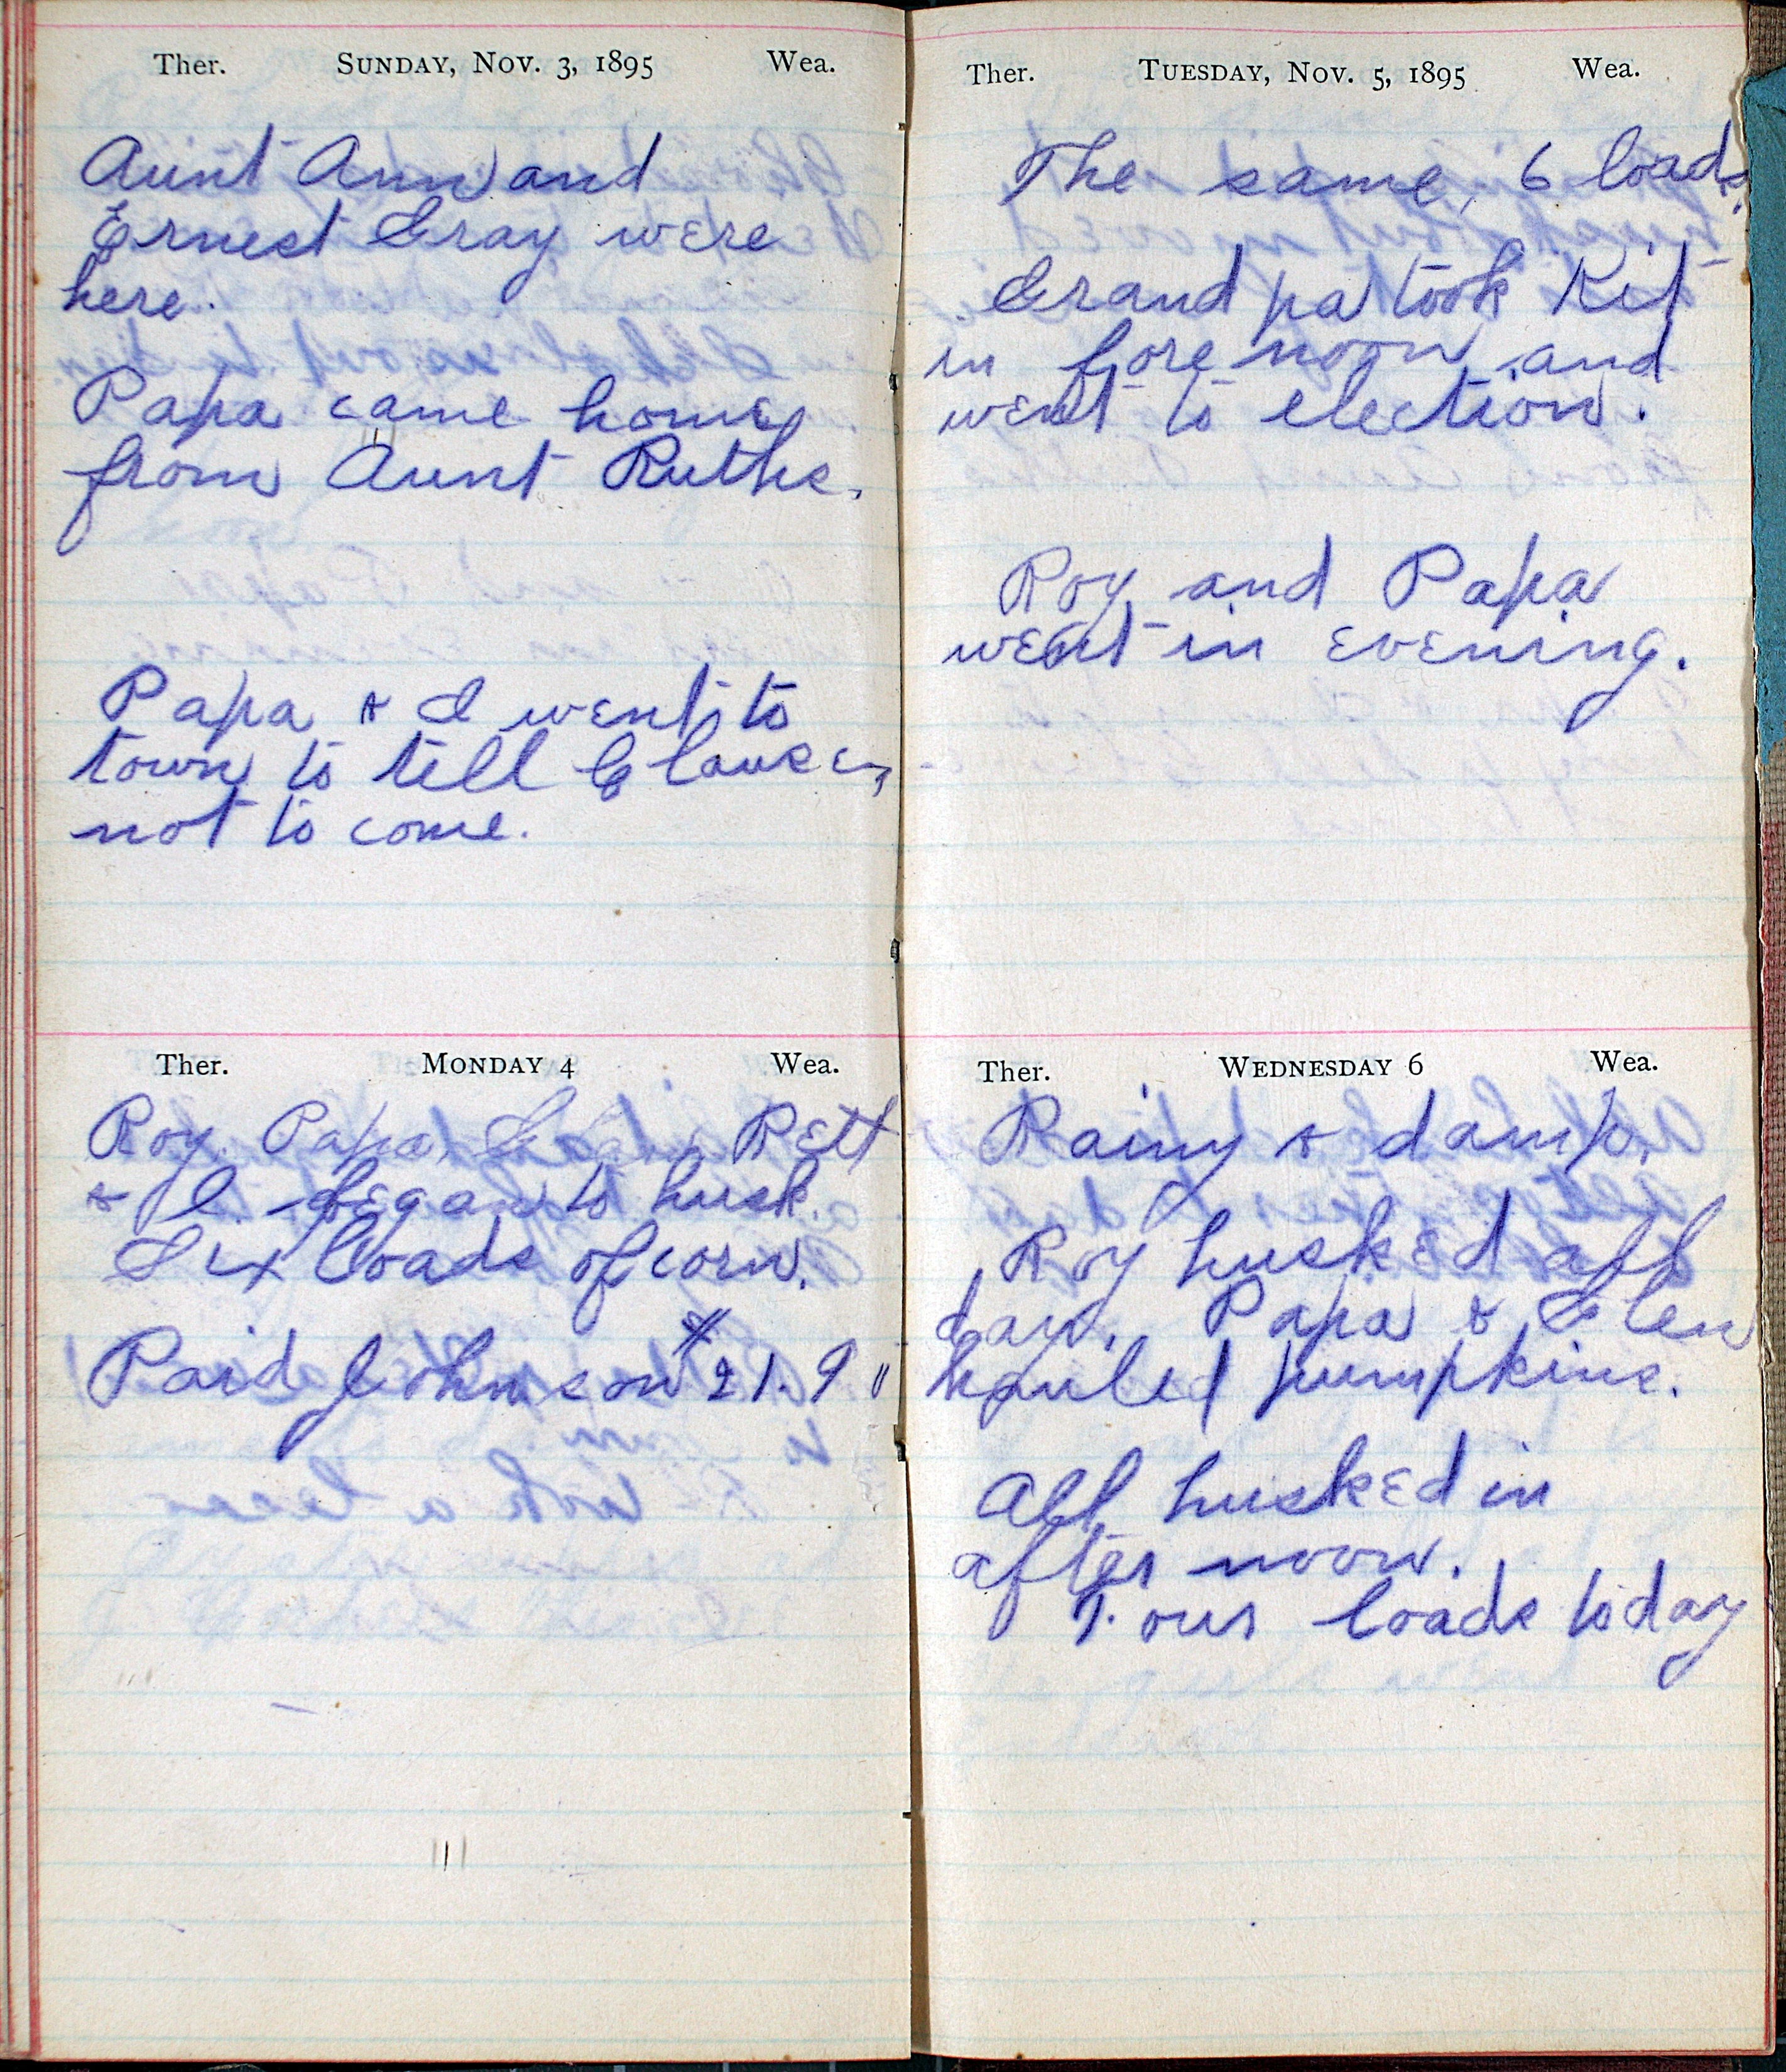 Ther. SUNDAY, NOV. 3, 1895 Wea.
Aunt Ann and
Ernest Gray were
here.
Papa came home
from Aunt Ruths.
Papa & I went to
town to tell Clausen
not to come.
Ther. MONDAY 4 Wea.
Roy, Papa, Rett
& I. began to husk.
Six loads of corn.
Paid Johnson $21.9
Ther. TUESDAY, NOV. 5, 1895 Wea.
The same, 6 loads.
Grand pa took Kit
in fore noon and
went to election.
Roy and Papa
went in evening.
Ther. WEDNESDAY 6 Wea.
Rainy & damp.
Roy husked all
day. Papa & Glen
hauled pumpkins.
All husked in
after noon.
Four loads today